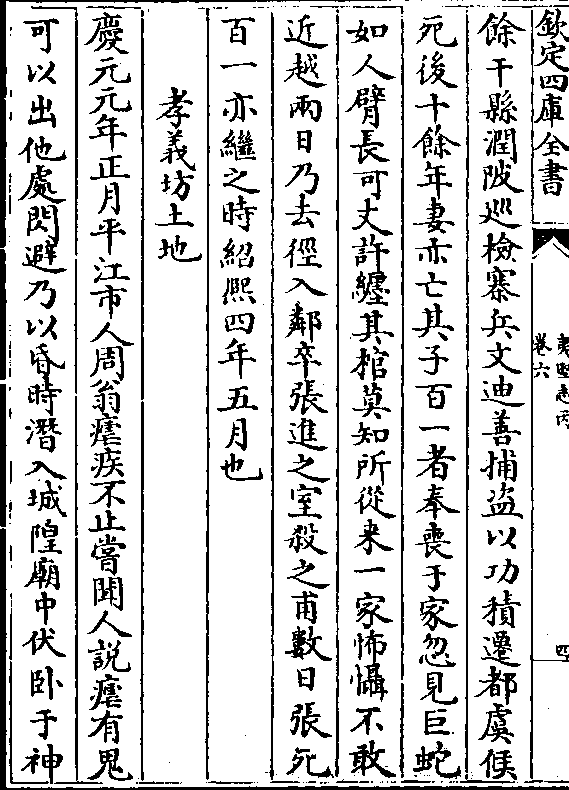 欽定四庫全書
夷堅志丙
卷六
四
餘干縣潤陂巡檢寨兵文迪善捕盗以功積遷都虞候
死後十餘年妻亦亡其子百一者奉喪于家忽見巨蛇
如人臂長可丈許纏其棺莫知所從来一家怖懾不敢
近越兩日乃去徑入鄰卒張進之室殺之甫數日張死
百一亦繼之時紹熙四年五月也
孝義坊土地
慶元元年正月平江市人周翁瘧疾不止嘗聞人說瘧有鬼
可以出他處閃避乃以昏時潛入城隍廟中伏卧于神